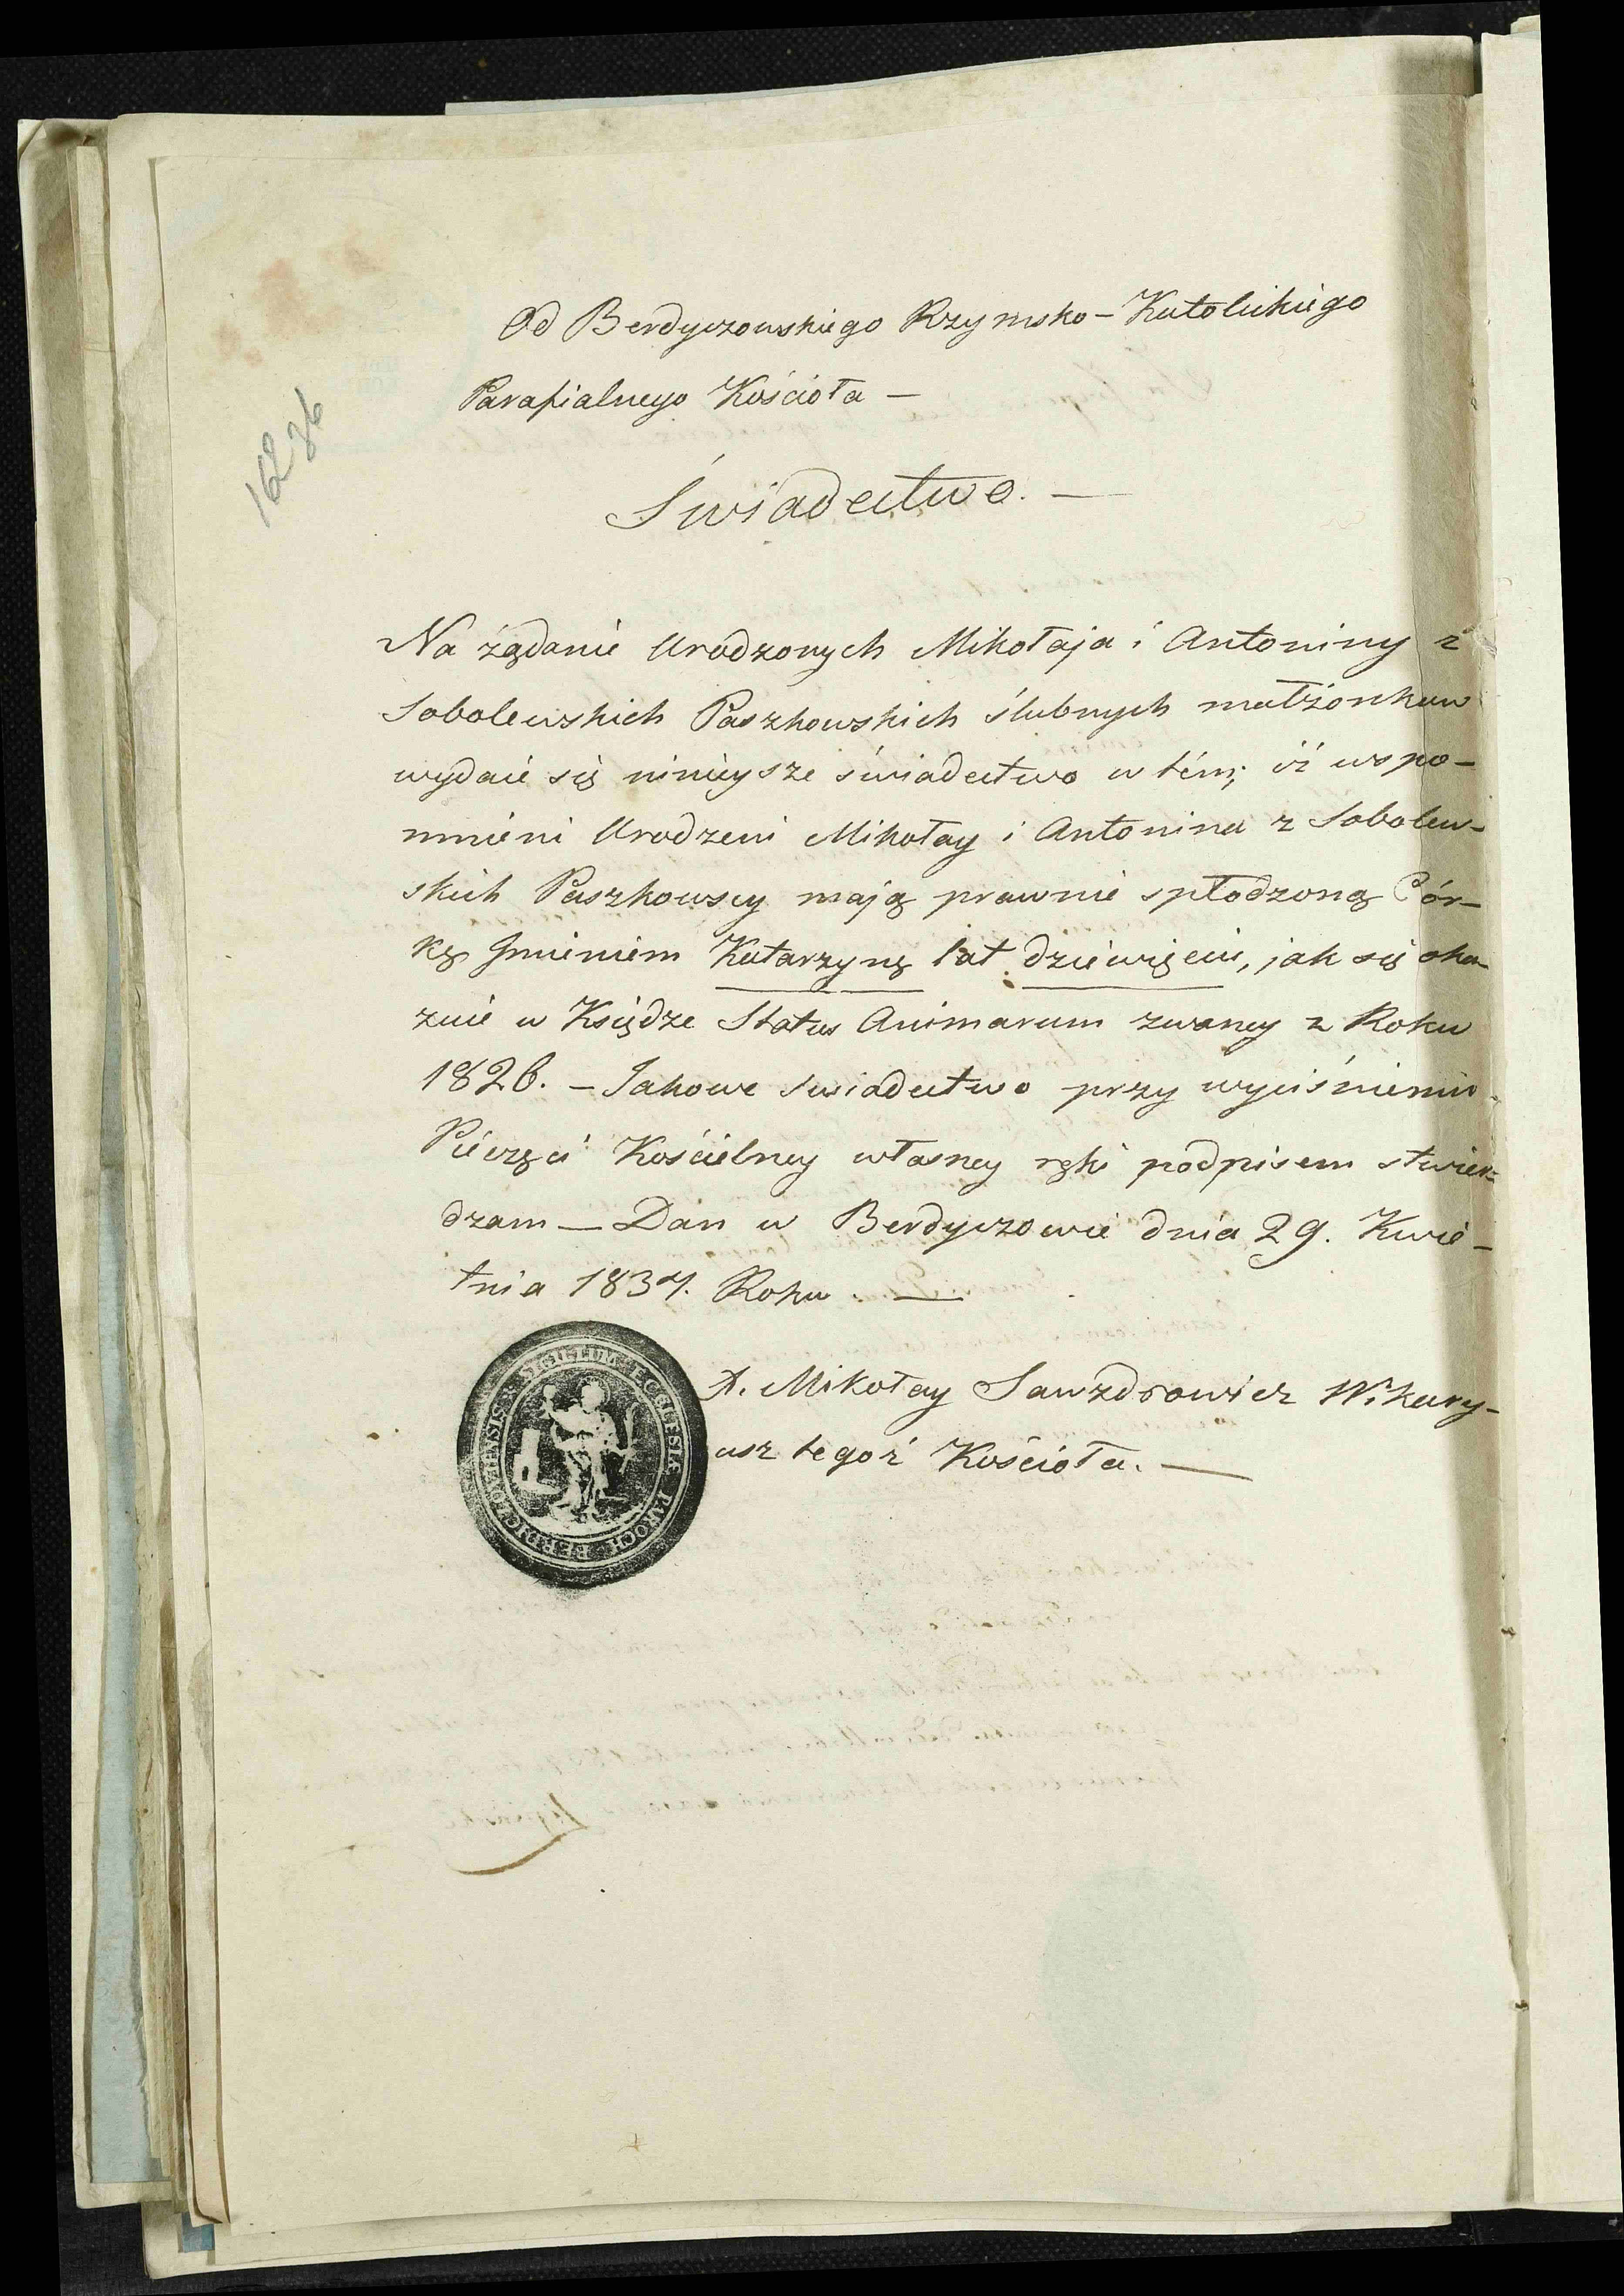 Od Berdyczowskiego Rzymsko-Katolickiego
Parafialnego Kościoła —
Świadectwo. —
Na żądanie Urodzonych Mikołaja i Antoniny z
Sobolewskich Paszkowskich ślubnych małżonkuw
wydaie się ninieysze świadectwo w tém; iż wspo-
mnieni Urodzeni Mikołay i Antonina z Sobolew-
skich Paszkowscy mają prawnie spłodzoną Cór-
kę Jmieniem Katarzynę lat dziewięciu, jak się oka-
zuie w Księdze Status Animarum zwaney z Roku
1826. – Jakowe świadectwo przy wyciśnieniu
Pieczęci Kościelney własney ręki podpisem stwier-
dzam — Dan w Berdyczowie dnia 29. Kwie-
tnia 1837. Roku. —
X. Mikołay Sawzdrowicz Wikary-
usz tegoż Kościoła. —
SIGILLUM ECCLESIÆ PAROCH: BERDICZOVIENSIS
1636